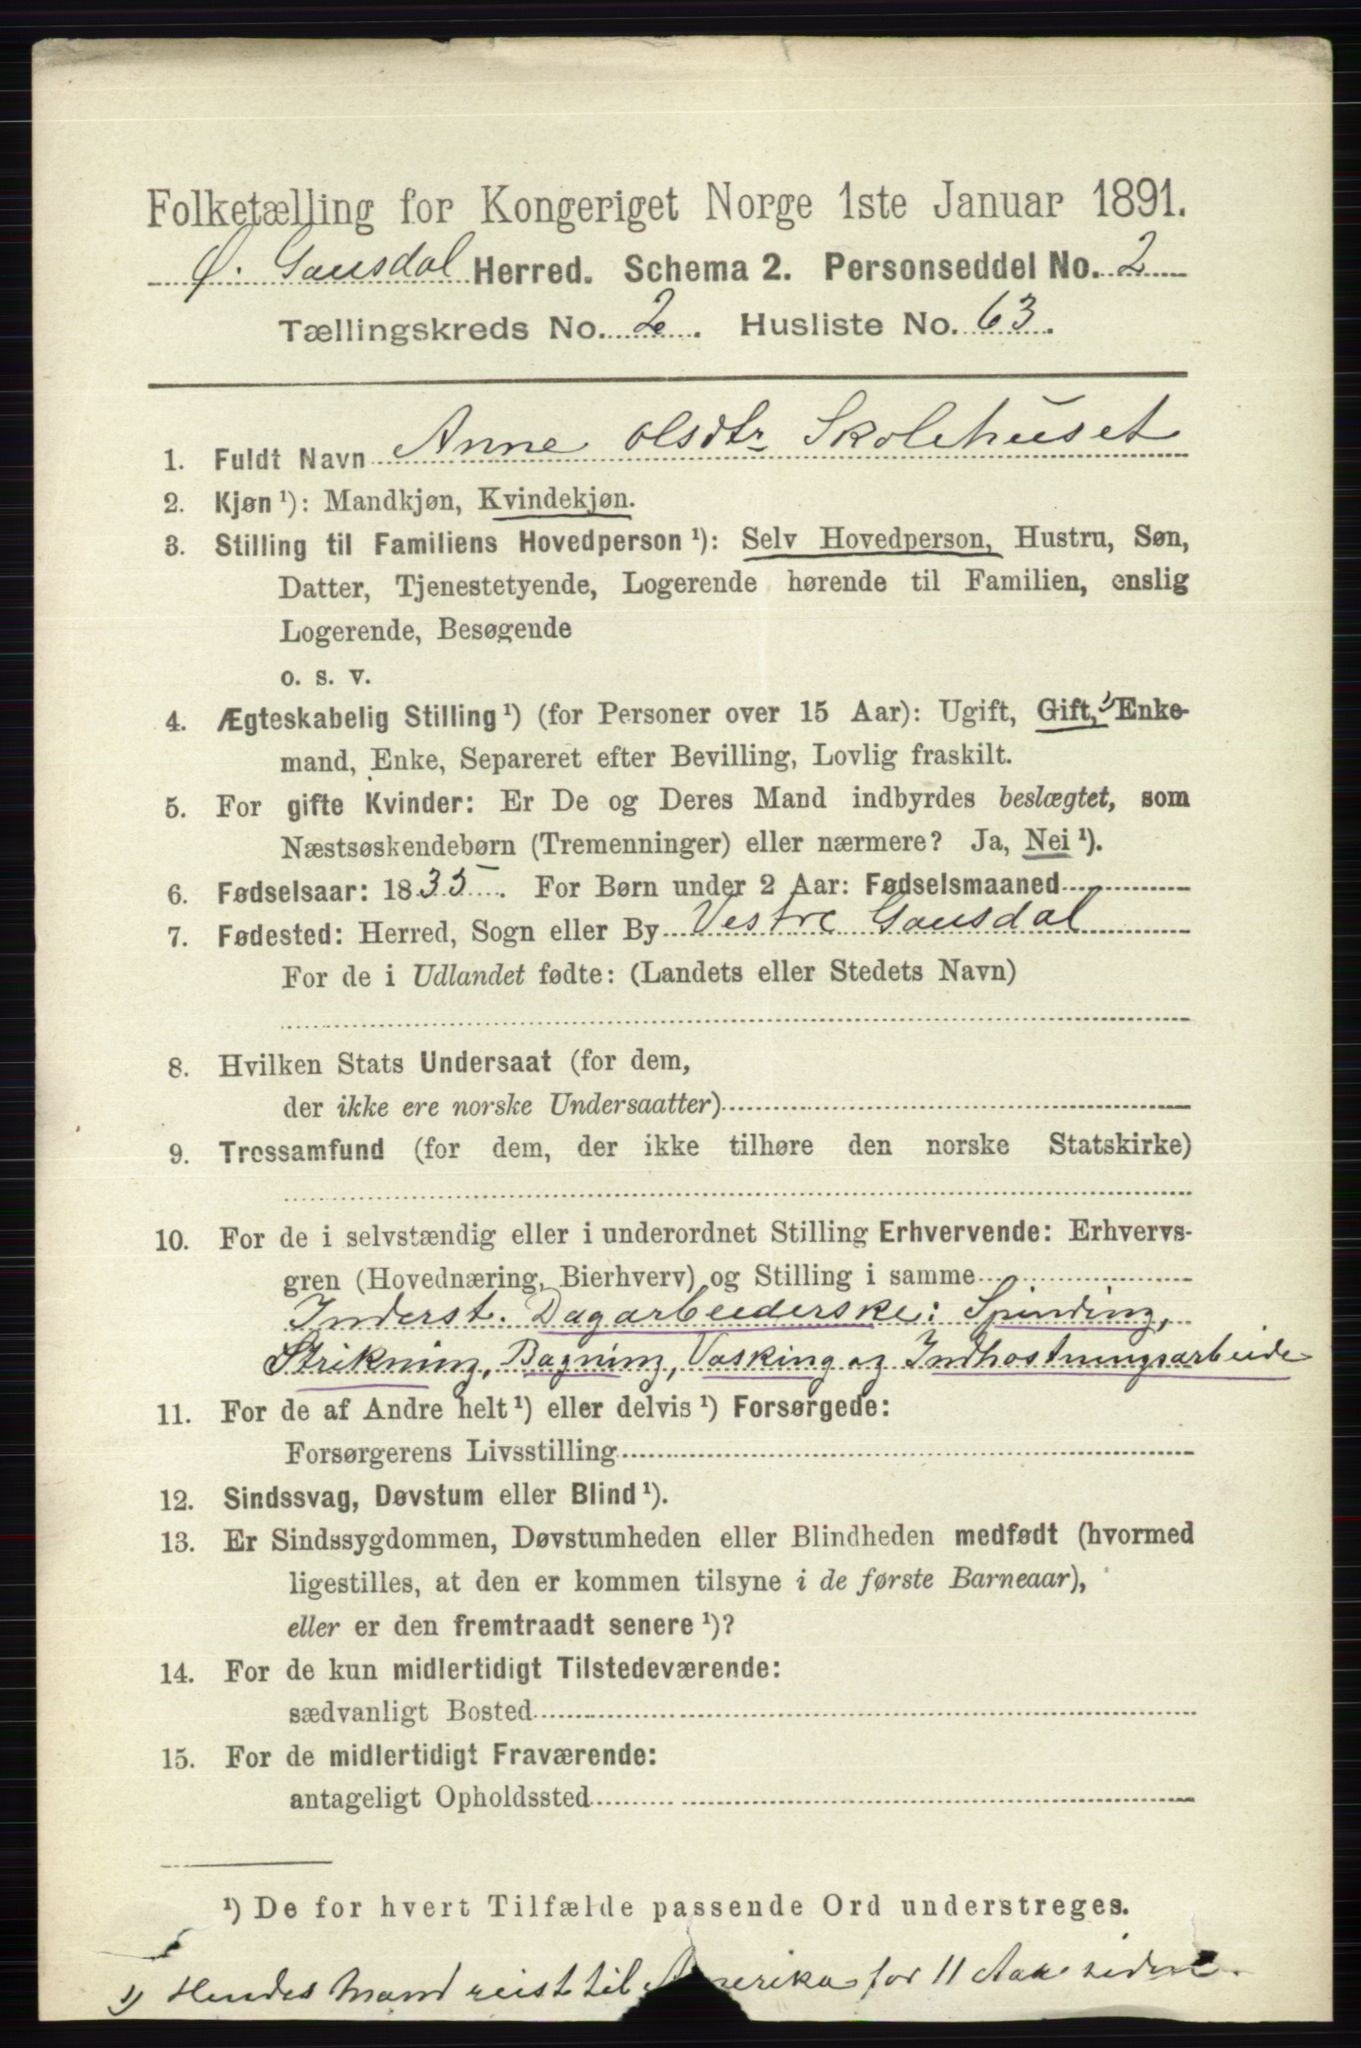 Folketælling for Kongeriget Norge 1ste Januar 1891.
Ø. Gausdal Herred. Schema 2. Personseddel No. 2
Tællingskreds No. 2. Husliste No. 63.
1. Fuldt Navn Anne Olsdtr Skolehuset
2. Kjøn ¹): Mandkjøn, Kvindekjøn.
3. Stilling til Familiens Hovedperson ¹): Selv Hovedperson, Hustru, Søn,
Datter, Tjenestetyende, Logerende hørende til Familien, enslig
Logerende, Besøgende
o. s. v.
4. Ægteskabelig Stilling ¹) (for Personer over 15 Aar): Ugift, Gift, ¹) Enke-
mand, Enke, Separeret efter Bevilling, Lovlig fraskilt.
5. For gifte Kvinder: Er De og Deres Mand indbyrdes beslægtet, som
Næstsøskendebørn (Tremenninger) eller nærmere? Ja, Nei ¹).
6. Fødselsaar: 1835. For Børn under 2 Aar: Fødselsmaaned
7. Fødested: Herred, Sogn eller By Vestre Gausdal
For de i Udlandet fødte: (Landets eller Stedets Navn)
8. Hvilken Stats Undersaat (for dem,
der ikke ere norske Undersaatter)
9. Trossamfund (for dem, der ikke tilhøre den norske Statskirke)
10. For de i selvstændig eller i underordnet Stilling Erhvervende: Erhvervs-
gren (Hovednæring, Bierhverv) og Stilling i samme
Inderst. Dagarbeiderske: Spinding,
Strikning, Bagning, Vasking og Indhøstningsarbeide
11. For de af Andre helt ¹) eller delvis ¹) Forsørgede:
Forsørgerens Livsstilling
12. Sindssvag, Døvstum eller Blind ¹).
13. Er Sindssygdommen, Døvstumheden eller Blindheden medfødt (hvormed
ligestilles, at den er kommen tilsyne i de første Barneaar),
eller er den fremtraadt senere ¹)?
14. For de kun midlertidigt Tilstedeværende:
sædvanligt Bosted
15. For de midlertidigt Fraværende:
antageligt Opholdssted
¹) De for hvert Tilfælde passende Ord understreges.
1) Hendes Mand reist til Amerika for 11 Aar siden.